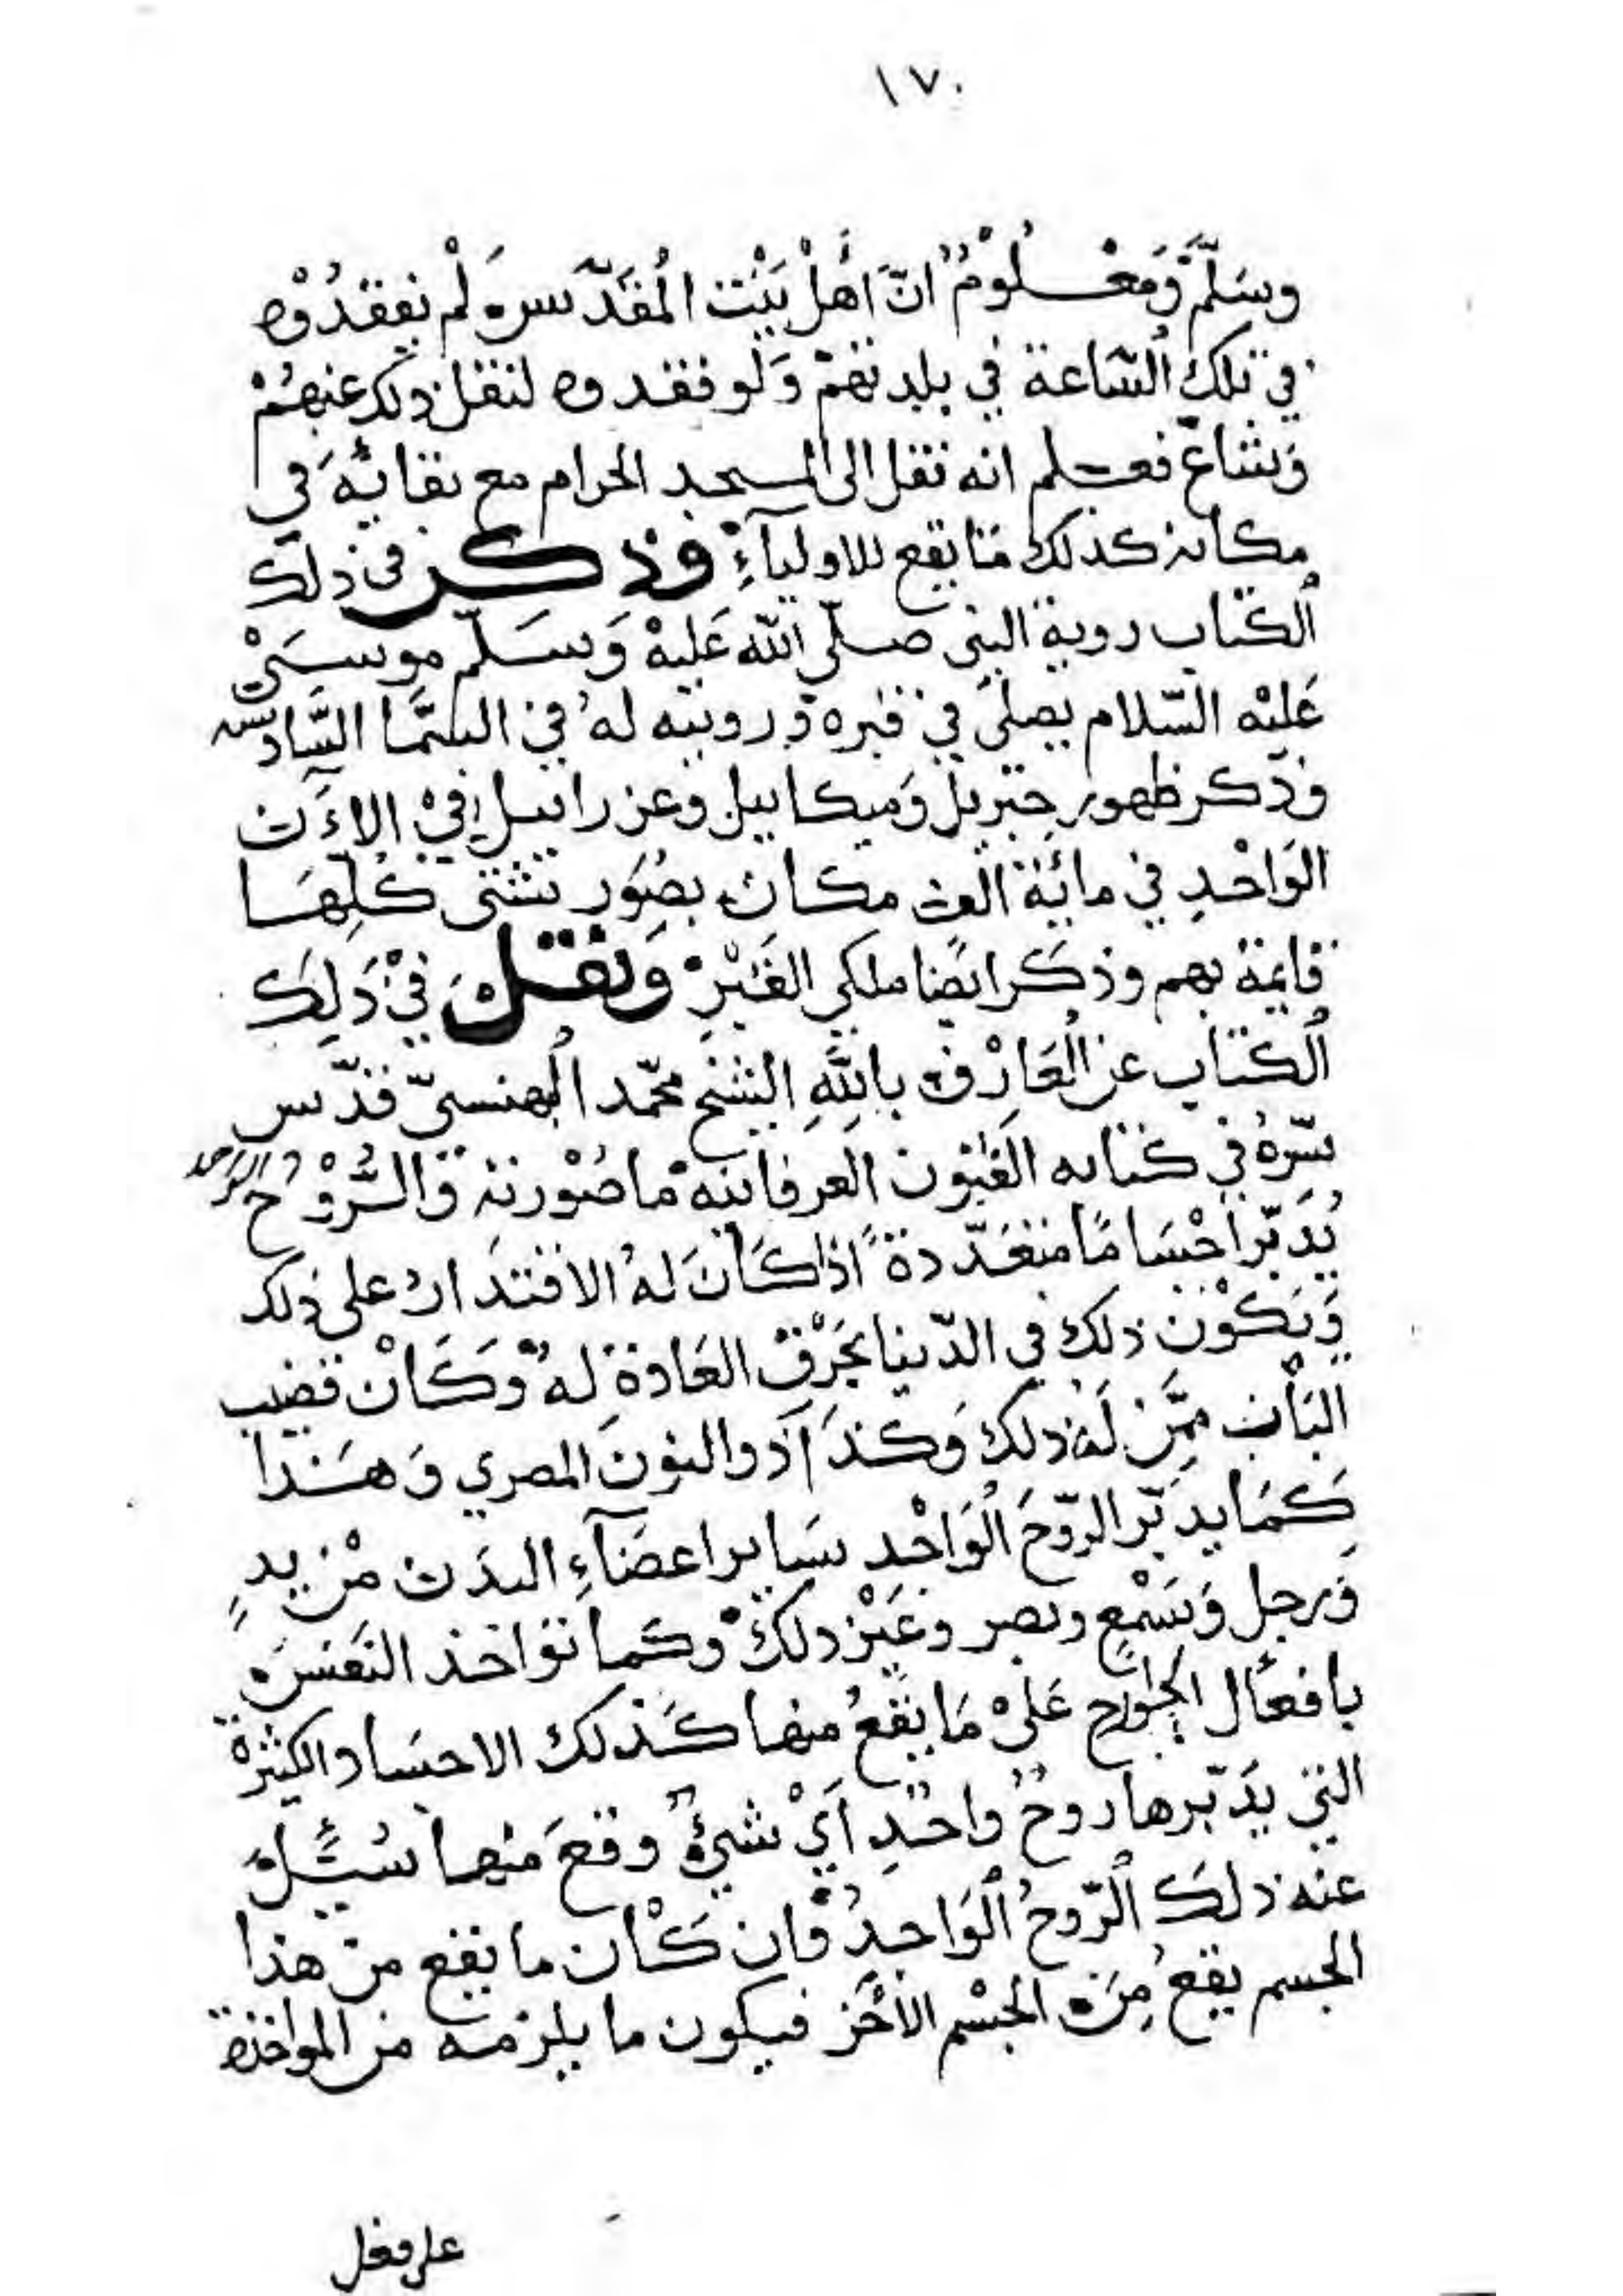 ١٧٠
وسَلَّم وَمَعْلُومٌ انّ اَهْل بَيْت المُقَدّس لَمْ يفقدُوْه
في تلك السَاعة في بلدتهمْ وَلو فقدوه لنقل ذلك عنهُمْ
وَشاع فعلم انه نقل الى المسجد الحرام مع بقائه في
مكانه كذلك مَا يقع للاوليآءِ وذكر في ذلك
الكتاب روية النبي صلّى الله عَليهْ وَسَلّم موسىْ
عَليْه السّلام يصلى في قبره وَرويته لهُ في السّمَا السَّادسه
وذكر ظهور جبريل وَميكاييل وعزراييل فيْ الاۤن
الوَاحْدِ في مائة الف مكان بصُوَر شتى كُلِّهَا
قايمة بهم وذكر ايضًا ملكي القَبْرِ وَنقل فيْ ذَلِك
الكتاب عن العَارْف باللَّهِ الشيخ محمّد البهنسيّ قدّس
سّرهُ في كتابه الفتون العرفانيه ما صُوْرته وَالرُّوْح الوَاحد
يُدَبّر اجْسَامًا متعَدّدة اذا كَانَ لهُ الاقتدَار على ذلك
وَيَكُوْن ذلك في الدّنيا بخَرْق العَادة لهُ وَكَانْ قضيب
البَان ممَّن لَهُ ذلك وَكذَا ذو النونَ المصري وَهَذا
كَمَا يدَبّر الرّوحَ الوَاحْد سَاير اعضَآءِ البدَن مْن يدٍ
وَرجل وَسَمْعٍ وبصر وغَيْر ذلكْ وَكما تؤاخذ النَفسَ
بافعَال الجوارح عَلىْ مَا يقعُ منها كَذلك الاجسَاد الكثيرة
التي يدَبّرها روحٌ واحْدٍ اَيْ شيءٌ وقعَ منها سُئِلَ
عنه ذلك الرّوحُ الوَاحِدُ فان كَان ما يقع من هذا
الجسم يقعُ مِنَ الجسْم الآخَر فيكون ما يلزمه من المواخذه
على فعل